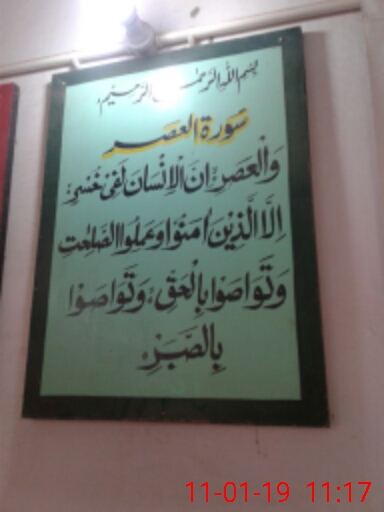 بسم الله الرحمن الرحيم
سورة العصر
والعصر ان الانسان لفی خسر
الا الذین امنوا وعملوا الصلحت
وتواصوا بالحق وتواصوا
بالصبر
11-01-19 11:17